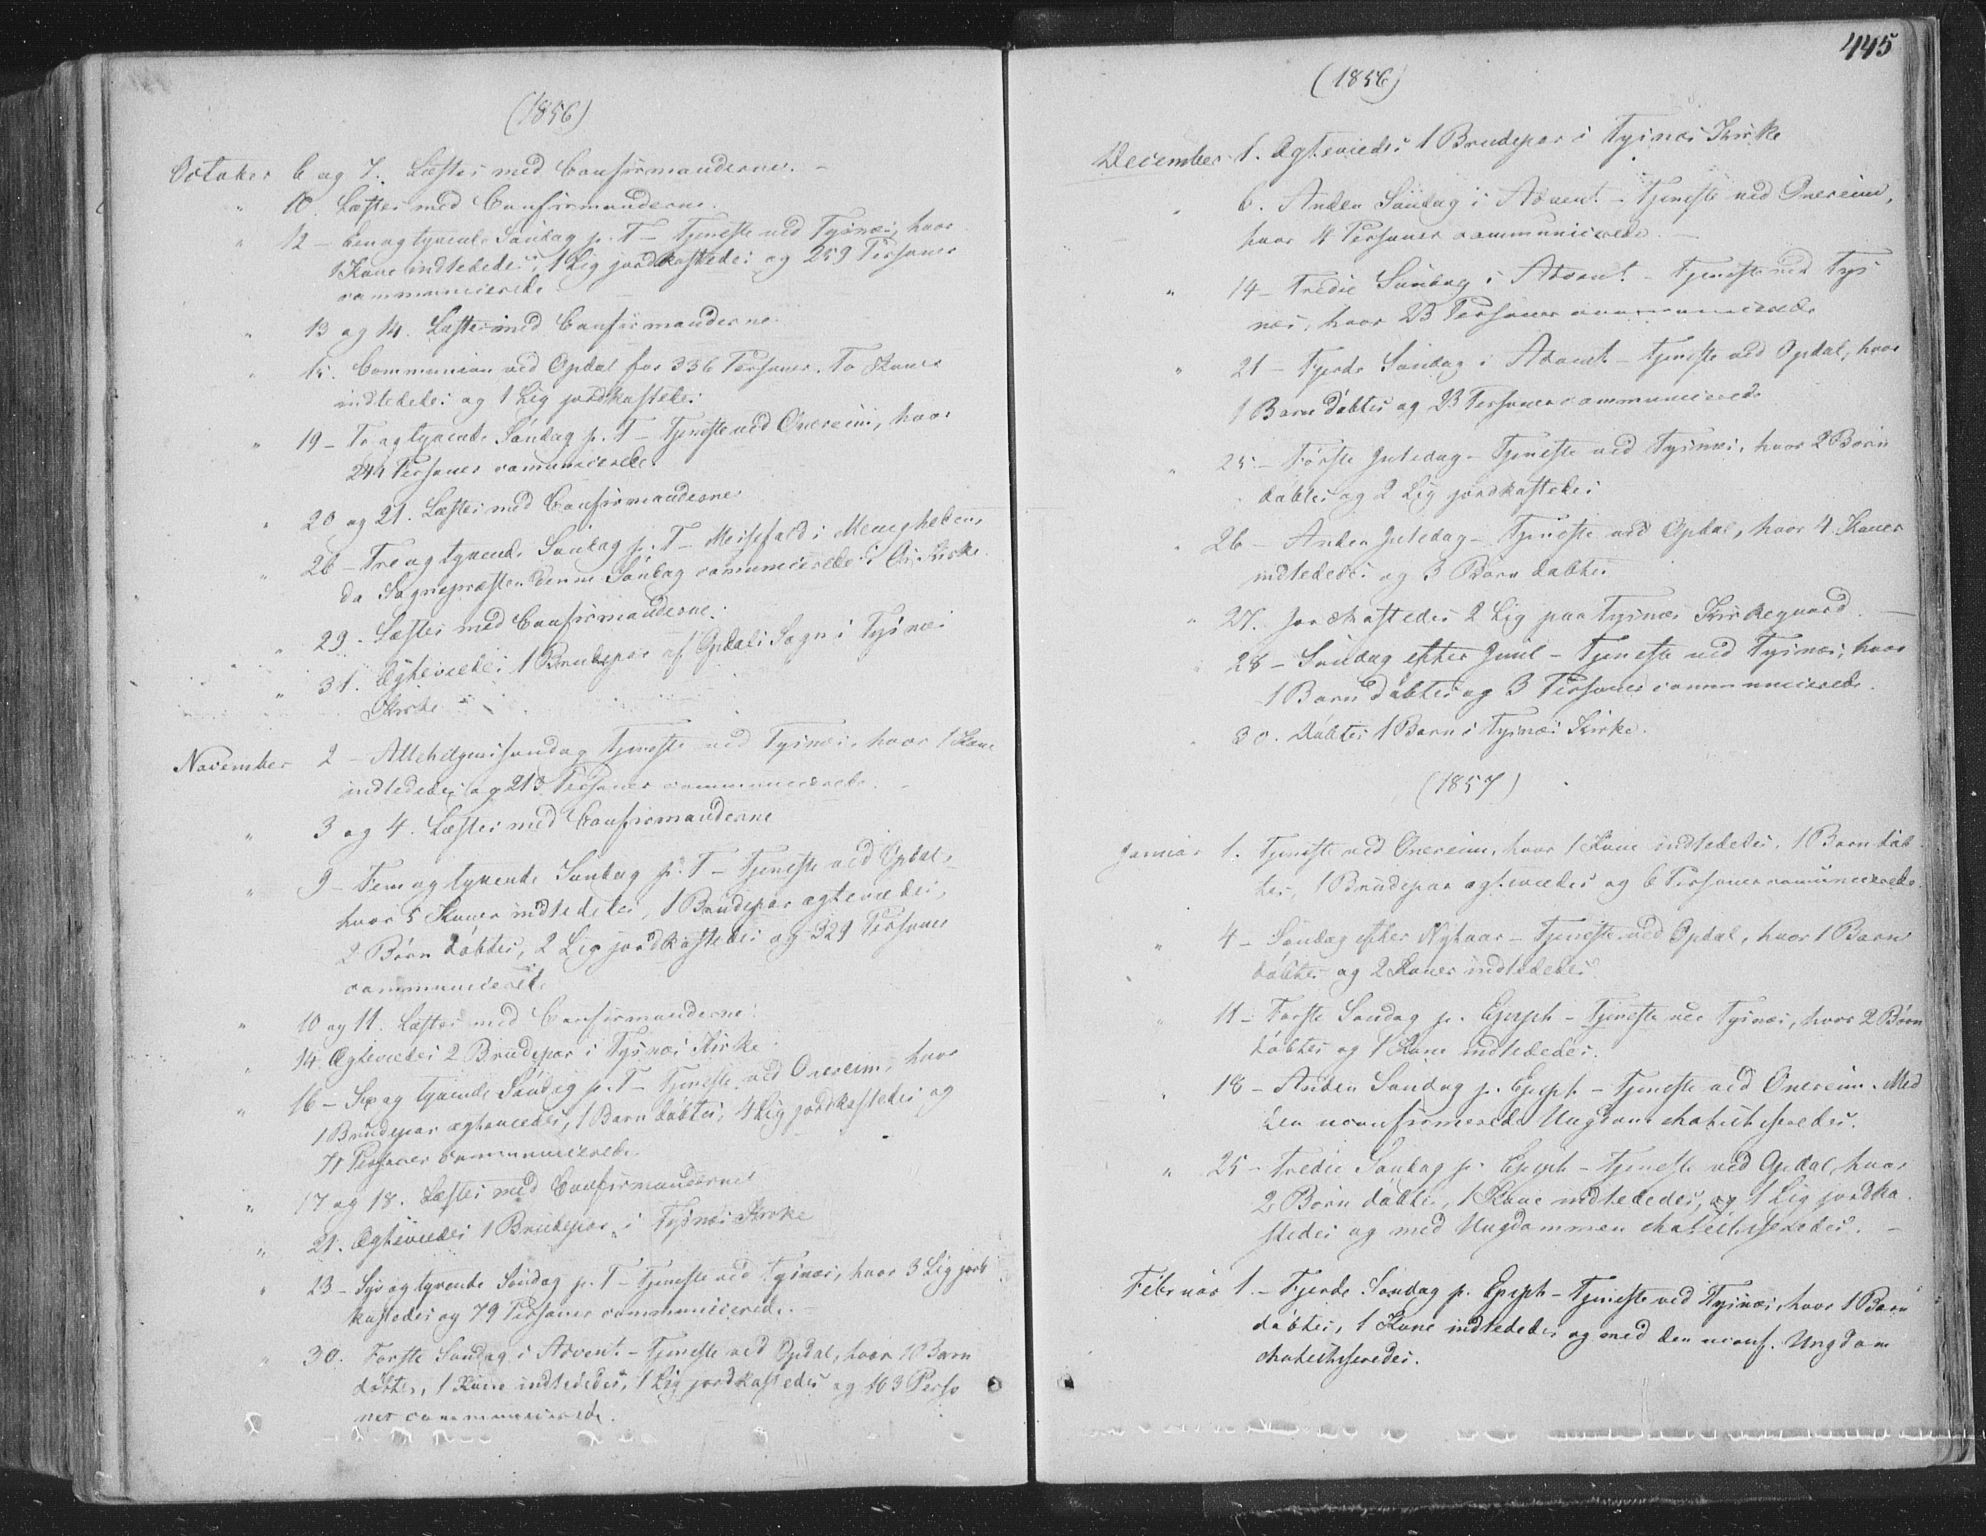 (1856)
October 6 og 7. Læstes med Confirmanderne. –
" 10. Læstes med Confirmanderne.
" 12 – Een og tyvende Søndag p. T – Tjeneste ved Tysnæs, hvor
1 Kone indlededes, 1 Lig jordkastedes og 259 Personer
communicerede
" 13 og 14. Læstes med Confirmanderne.
" 15. Communion ved Opdal for 336 Personer. To Koner
indlededes og 1 Lig jordkastedes
" 19 – To og tyvende Søndag p. T – Tjeneste ved Onereim, hvor
244 Personer comunicerede
" 20 og 21. Læstes med Confirmanderne
" 26 – Tre og tyvende Søndag p. T – Messefald i Menigheden,
da Sognepræsten denne Søndag comunicerede i Kirke.
" 29. Læstes med Confirmanderne.
" 31. Ægteviedes 1 Brudepar af Opdals Sogn i Tysnæs
Kirke
November 2 – Allehelgenssøndag Tjeneste ved Tysnæs, hvor 1 Kone
indlededes og 213 Personer communicerede. –
" 3 og 4. Læstes med Confirmanderne
" 9 – Fem og tyvende Søndag p. T – Tjeneste ved Opdal,
hvor 5 Koner indlededes, 1 Brudepar ægteviedes,
2 Børn døbtes, 2 Lig jordkastedes og 329 Personer
communicerede
" 10 og 11. Læstes med Confirmanderne.
" 14. Ægteviedes 2 Brudepar i Tysnæs Kirke.
" 16 – Sex og tyvende Søndag p. T – Tjeneste ved Onereim, hvor
1 Brudepar ægteviedes, 1 Barn døbtes, 4 Lig jordkastedes og
71 Personer communicerede.
" 17 og 18. Læstes med Confirmanderne
" 21. Ægteviedes 1 Brudepar i Tysnæs Kirke
" 23 – Syv og tyvende Søndag p. T – Tjeneste ved Tysnæs, hvor 3 Lig jord
kastedes og 79 Personer communicerede.
" 30. Første Søndag i Advent – Tjeneste ved Opdal, hvor 1 Barn
døbtes, 1 Kone indlededes, 1 Lig jordkastedes og 103 Perso
ner communicerede.
445
(1856)
December 1. Ægteviedes 1 Brudepar i Tysnæs Kirke
" 6. Anden Søndag i Advent – Tjeneste ved Onereim,
hvor 4 Personer communicerede. –
" 14 – Tredie Søndag i Advent – Tjeneste ved Tys
næs, hvor 23 Personer communicerede
" 21 – Fjerde Søndag i Advent – Tjeneste ved Opdal, hvor
1 Barn døbtes og 23 Personer communicerede
" 25 – Første Juledag – Tjeneste ved Tysnæs, hvor 2 Børn
døbtes og 2 Lig jordkastedes
" 26 – Anden Juledag – Tjeneste ved Opdal, hvor 4 Koner
indlededes og 3 Børn døbtes
" 27. Jordkastedes 2 Lig paa Tysnæs Kirkegaard. –
" 28 – Søndag efter Juul – Tjeneste ved Tysnæs, hvor
1 Barn døbtes og 3 Personer communicerede.
" 30. Døbtes 1 Barn i Tysnæs Kirke.
(1857)
Januar 1. Tjeneste ved Onereim, hvor 1 Kone indlededes, 1 Barn døb
tes, 1 Brudepar ægteviedes og 6 Personer comunicerede.
" 4 – Søndag efter Nytaar – Tjeneste ved Opdal, hvor 1 Barn
døbtes og 2 Koner indlededes.
" 11 – Første Søndag p. Epiph – Tjeneste ved Tysnæs, hvor 2 Børn
døbtes og 1 Kone indlededes.
" 18 – Anden Søndag p. Epiph – Tjeneste ved Onereim. Med
den uconfirmerede Ungdom chatechiseredes.
" 25 – Tredie Søndag p. Epiph – Tjeneste ved Opdal, hvor
2 Børn døbtes, 1 Kone indlededes, og 1 Lig jordka
stedes og med Ungdommen chatechiseredes. –
Februar 1. – Fjerde Søndag p. Epiph – Tjeneste ved Tysnæs, hvor 1 Barn
døbtes, 1 Kone indlededes og med den uconf. Ungdom
chatechiseredes.